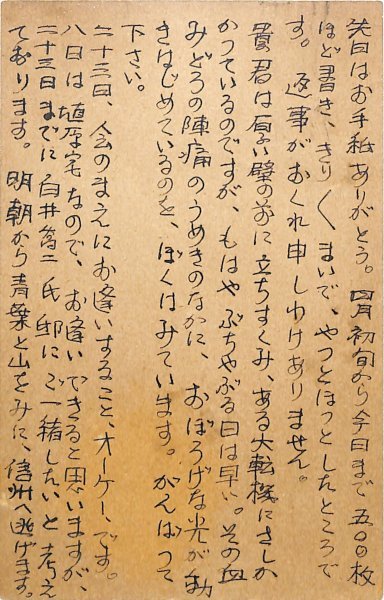 先日はお手紙ありがとう。四月初旬から今日まで五〇〇枚
ほど書き、きりきりまいで、やっとほっとしたところで
す。返事がおくれ申しわけありません。
貴君は厚い壁の前に立ちすくみ、ある大転機にさしか
かっているのですが、もはやぶちやぶる日は早い。その血
みどろの陣痛のうめきのなかに、おぼろげな光が動
きはじめているのを、ぼくはみています。がんばって
下さい。
二十三日、会のまえにお逢いすること、オーケーです。
八日は埴谷宅なので、お逢いできると思いますが、
二十三日までに臼井吉二氏邸に一緒したいと考え
ております。明朝から青葉と山をみに、信州へ逃げます。